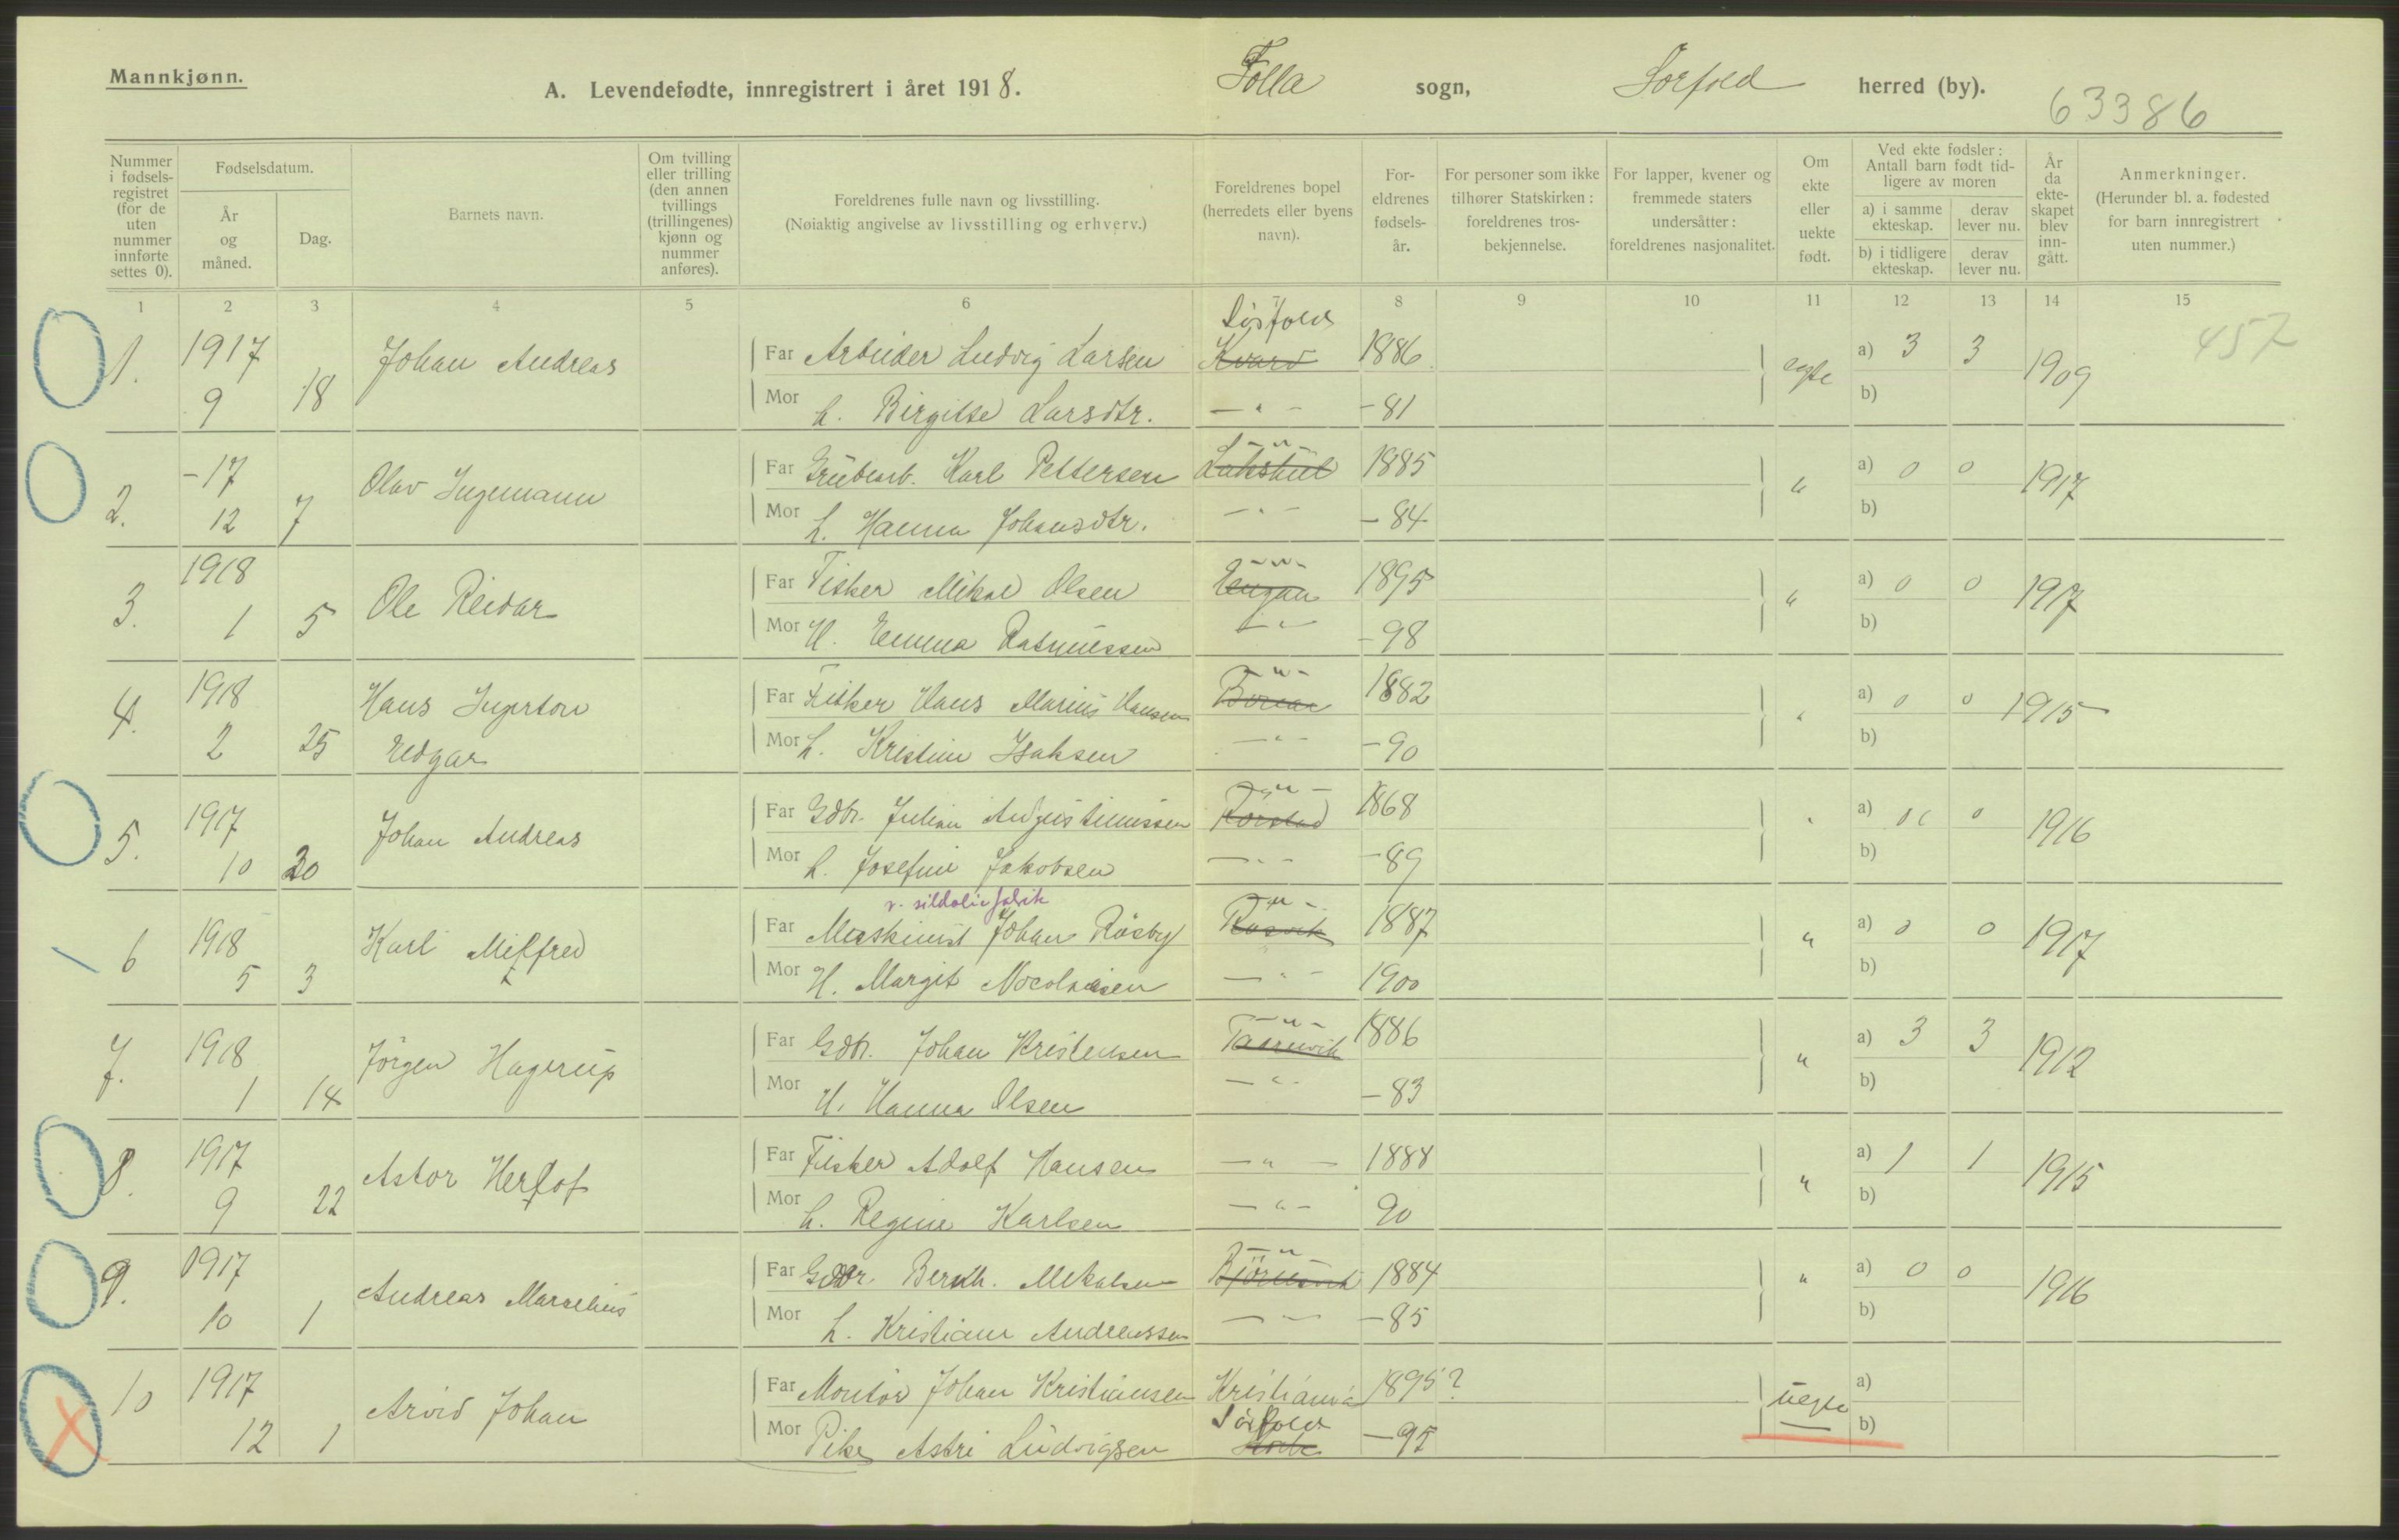 Mannkjønn.
A. Levendefødte, innregistrert i året 1918. Folla sogn, Sorfold herred (by).
63386
Nummer i fødselsregistret (for de uten nummer innførte settes 0).
Fødselsdatum.
År og måned.
Dag.
Barnets navn.
Om tvilling eller trilling (den annen tvillings (trillingenes) kjønn og nummer anføres).
Foreldrenes fulle navn og livsstilling.
(Nøiaktig angivelse av livsstilling og erhverv.)
Foreldrenes bopel (herredets eller byens navn).
Foreldrenes fødselsår.
For personer som ikke tilhører Statskirken: foreldrenes trosbekjennelse.
For lapper, kvener og fremmede staters undersåtter: foreldrenes nasjonalitet.
Om ekte eller uekte født.
Ved ekte fødsler: Antall barn født tidligere av moren
a) i samme ekteskap.
derav lever nu.
b) i tidligere ekteskap.
derav lever nu.
År da ekteskapet blev inngått.
Anmerkninger.
(Herunder bl. a. fødested for barn innregistrert uten nummer.)
1 2 3 4 5 6 7 8 9 10 11 12 13 14 15
457
Sörfold
1. 1917 9 18 Johan Andreas
Far Arbeider Ludvig Larsen Kvarv 1886 egte a) 3 3 1909
Mor h. Birgitte Larsdtr. — " — -81 b)
2. -17 12 7 Olav Ingemann
— " —
Far Grubearb. Karl Pettersen Lakshul 1885 " a) 0 0 1917
Mor h. Hanna Johansdtr. — " — -84 b)
3. 1918 1 5 Ole Reidar
— " —
Far Fisker Mikal Olsen Engan 1895 " a) 0 0 1917
Mor H. Emma Rasmussen — " — -98 b)
4. 1918 2 25 Hans Ingerton Edgar
— " —
Far Fisker Hans Marius Hansen 1882 " a) 0 0 1915
Mor h. Kristine Isaksen — " — -90 b)
5. 1917 10 20 Johan Andreas
— " —
Far Gdbr. Julian Augustinussen Rörstad 1868 " a) 0 0 1916
Mor h. Josefine Jakobsen — " — -89 b)
v. sildoliefabrik
6 1918 5 3 Karl Milfred
— " —
Far Maskinist Johan Råsby Røsvik 1887 " a) 0 0 1917
Mor H. Margit Nocolaisen — " — 1900 b)
7. 1918 1 14 Jörgen Hagerup
— " —
Far Gdbr. Johan Kristensen Tårnvik 1886 " a) 3 3 1912
Mor H. Hanna Olsen — " — -83 b)
8. 1917 9 22 Astor Herlof
Far Fisker Adolf Hansen — " — 1888 " a) 1 1 1915
Mor h. Regine Karlsen — " — 90 b)
9. 1917 10 1 Andreas Marselius
— " —
Far Gdbr. Bernh. Mikalsen Björnsvik 1884 " a) 0 0 1916
Mor h. Kristiane Andreassen — " — -85 b)
10 1917 12 1 Arvid Johan
Far Montör Johan Kristiansen Kristiania 1895? uegte a)
Sörfold
Mor Pike Astri Ludvigsen -95 b)